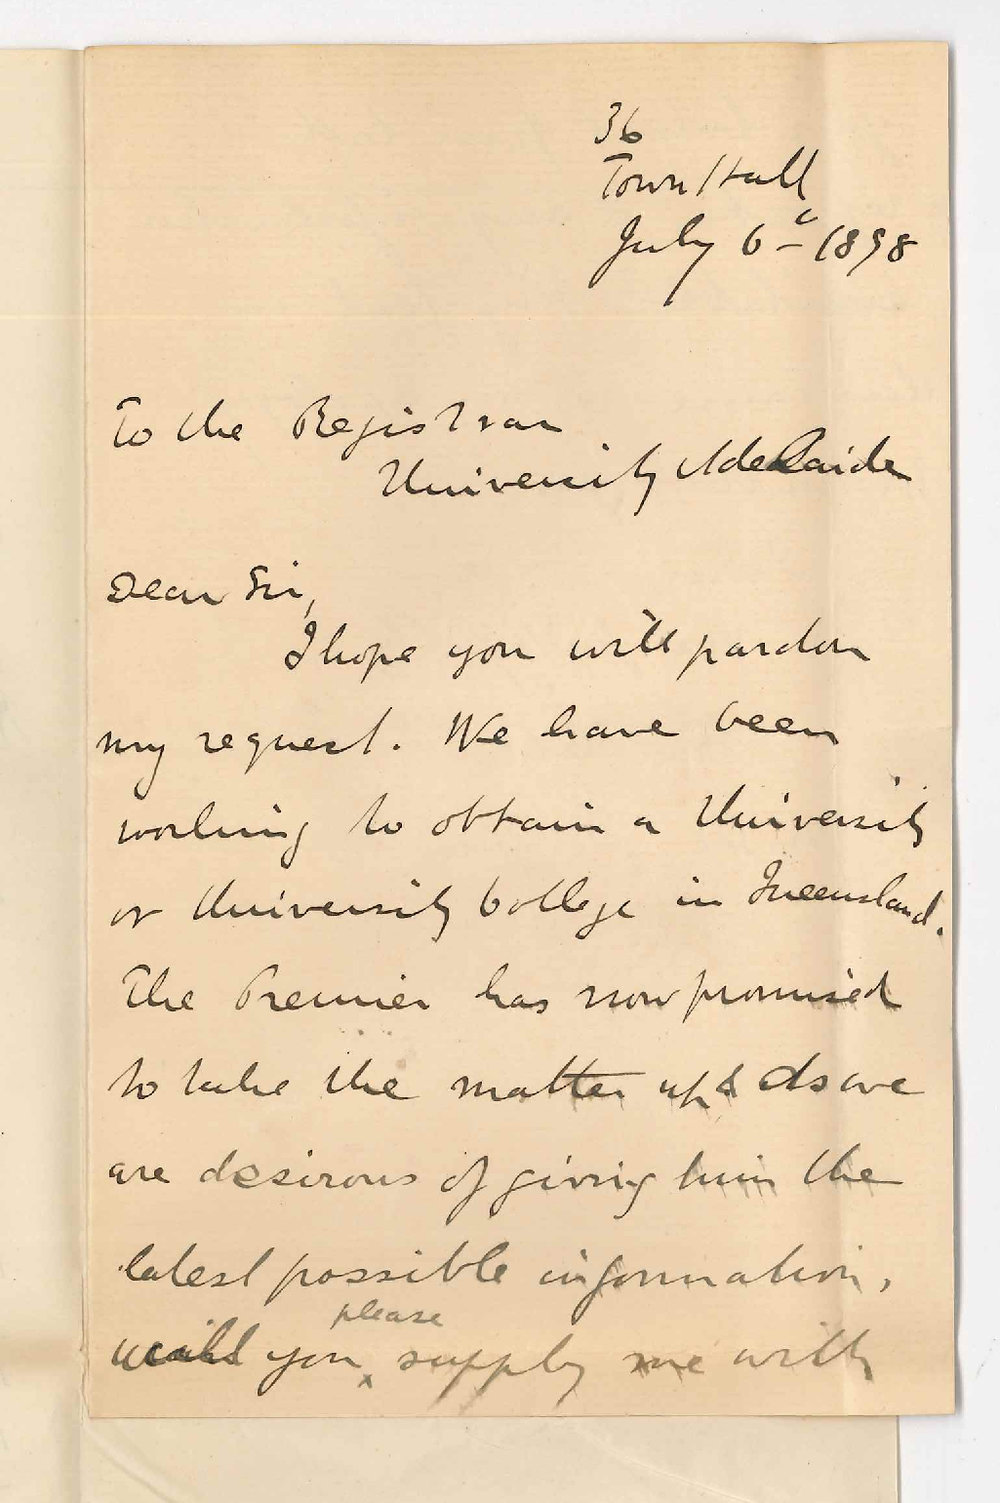 36
Town Hall
July 6th 1898
To the Registrar
University Adelaide
Dear Sir,
I hope you will pardon
my request. We have been
working to obtain a University
or University College in Queensland.
The Premier has now promised
to take the matter up & as we
are desirous of giving him the
latest possible information,
please
will you supply me with